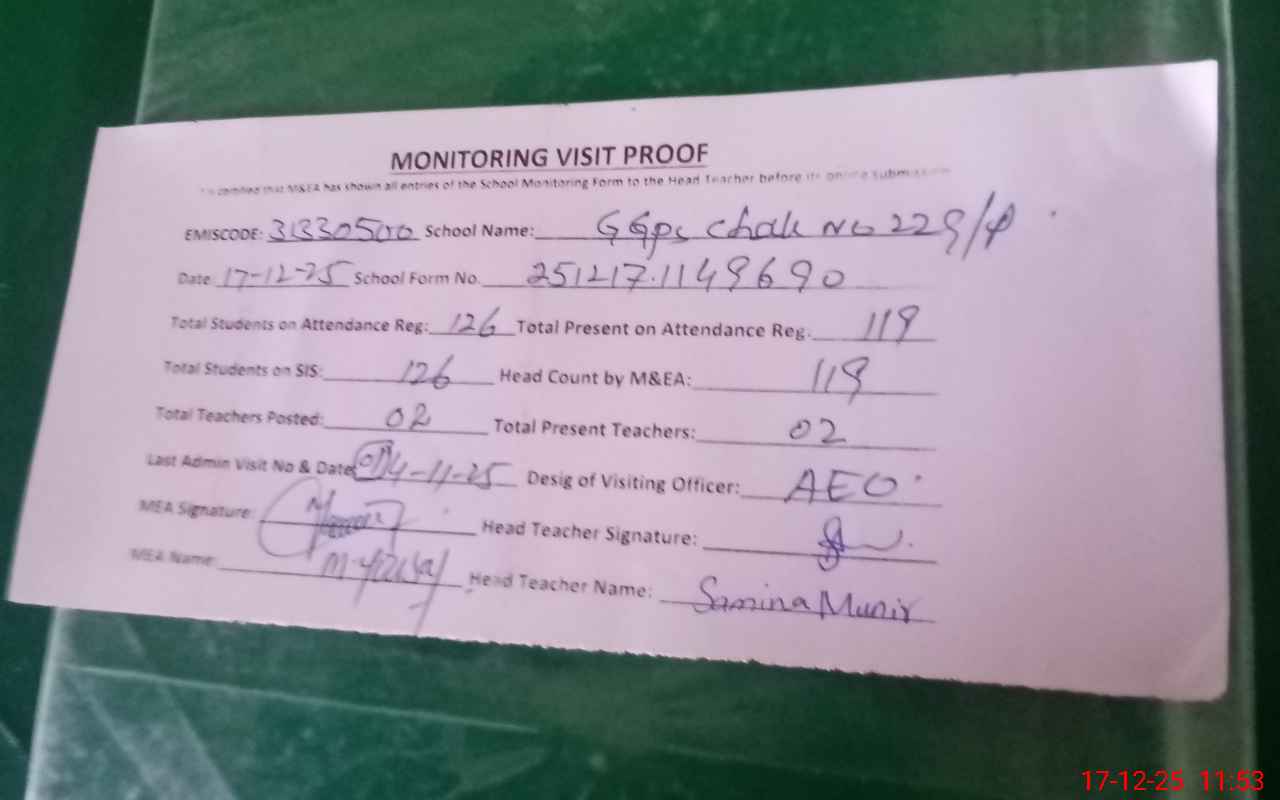 MONITORING VISIT PROOF
certified that M&EA has shown all entries of the School Monitoring Form to the Head Teacher before its online submission
EMISCODE: 31330500 School Name: GGps Chak No 229/P
Date: 17-12-25 School Form No. 251217.1149690
Total Students on Attendance Reg: 126 Total Present on Attendance Reg. 119
Total Students on SIS: 126 Head Count by M&EA: 119
Total Teachers Posted: 02 Total Present Teachers: 02
Last Admin Visit No & Date: 01 14-11-25 Desig of Visiting Officer: AEO
MEA Signature: Head Teacher Signature:
MEA Name: Head Teacher Name: Samina Munir
17-12-25 11:53